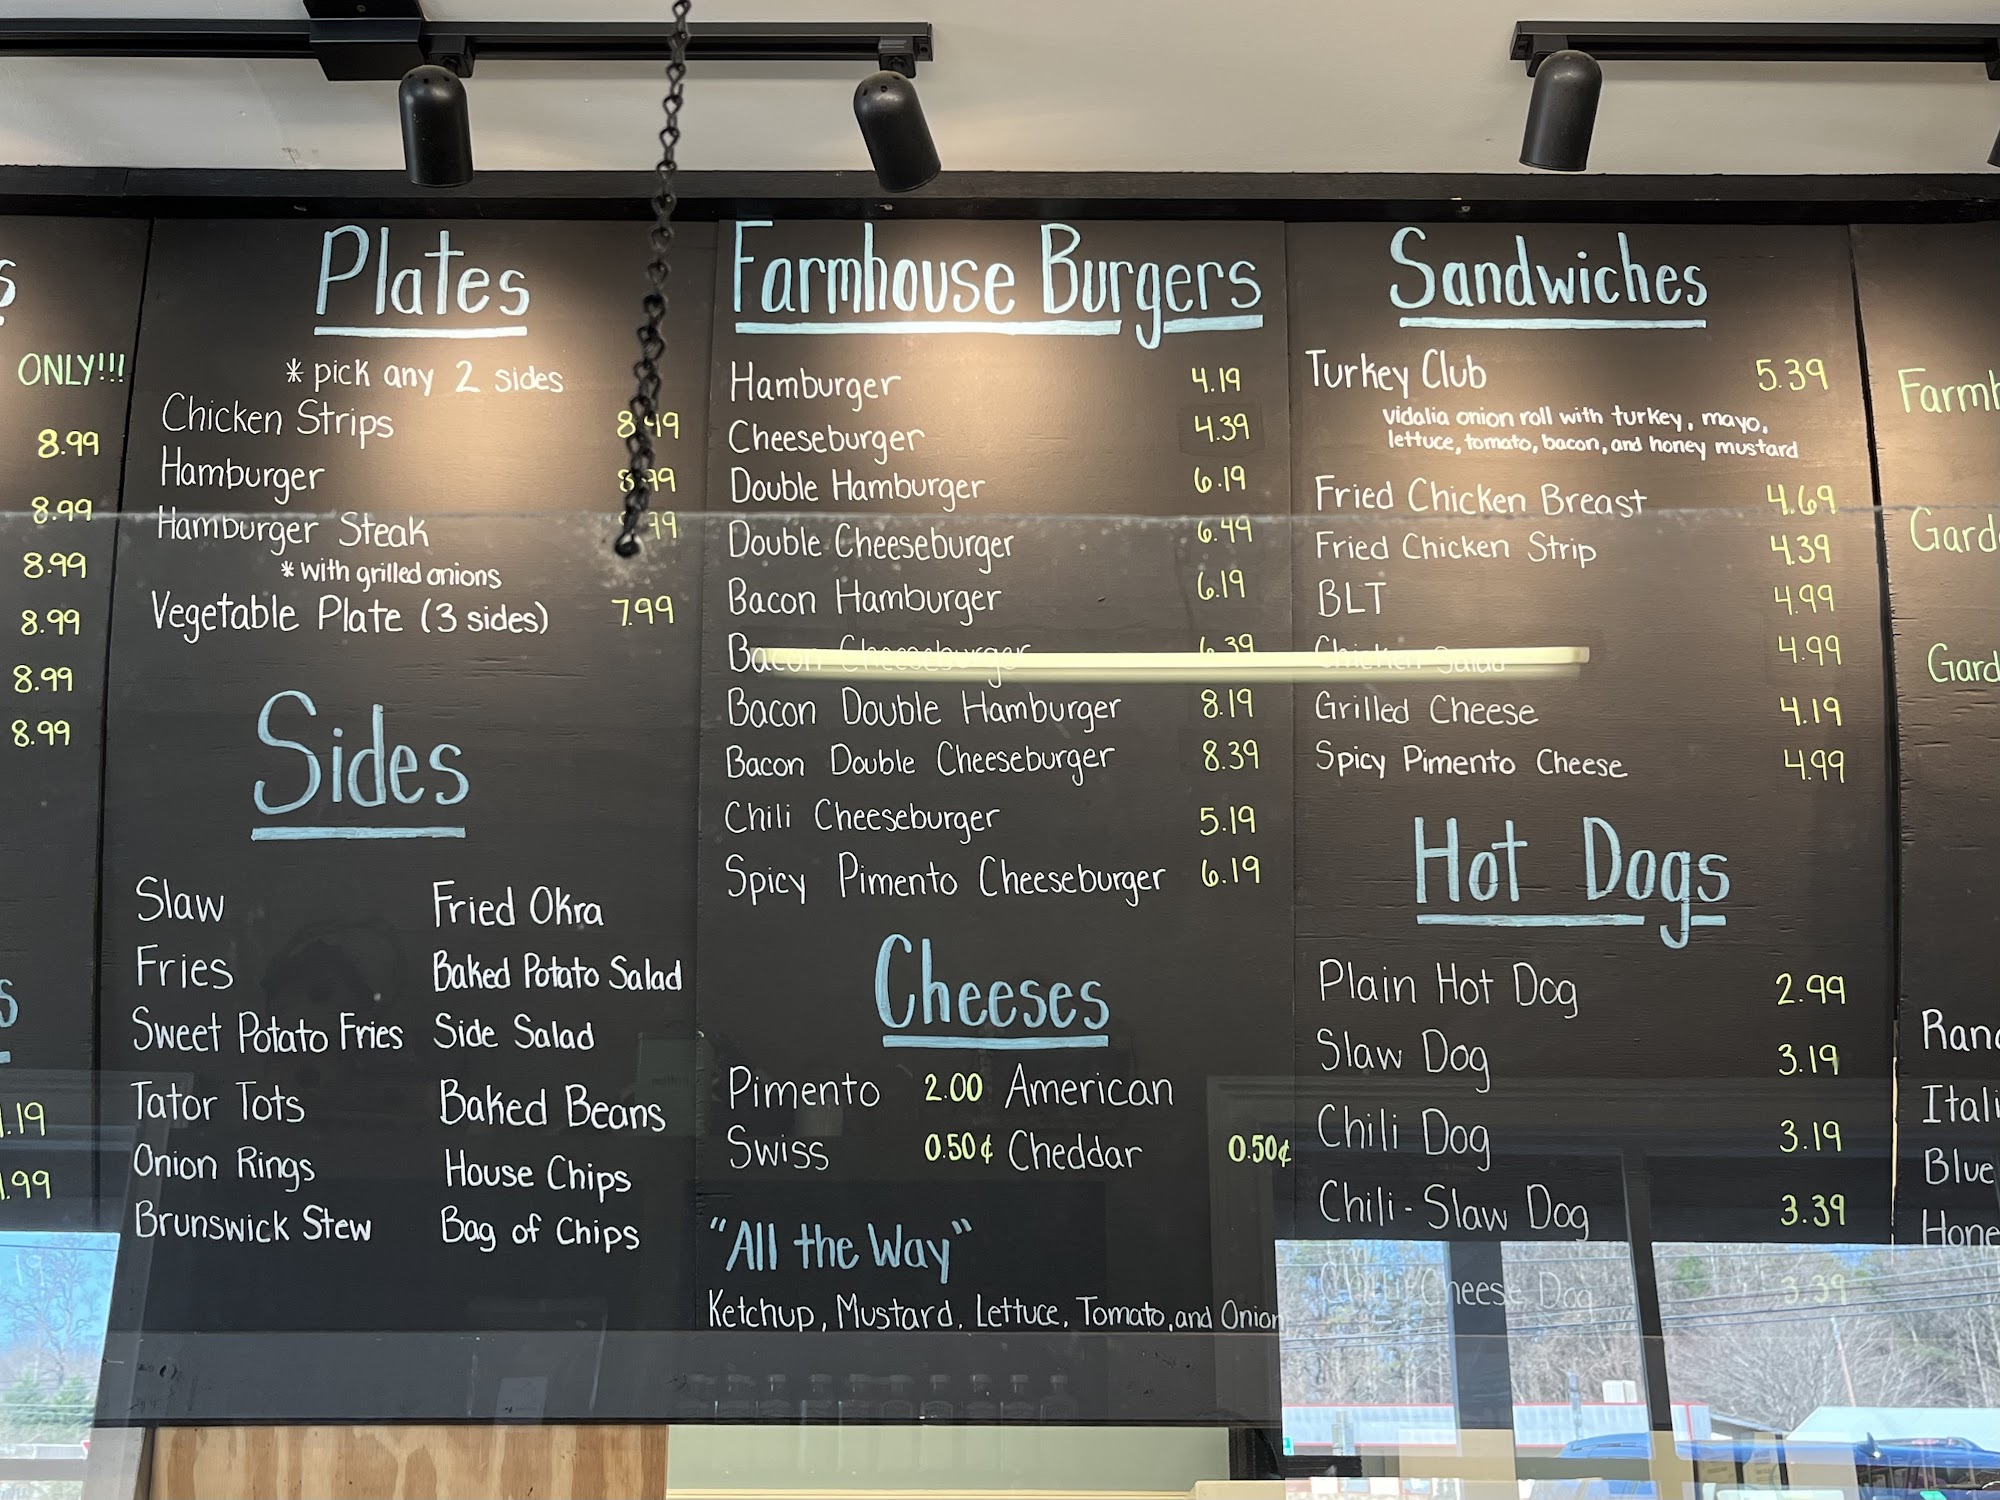 ONLY!!!
8.99
8.99
8.99
8.99
8.99
8.99
.19
.99
Plates
* pick any 2 sides
Chicken Strips
Hamburger
Hamburger Steak
* with grilled onions
Vegetable Plate (3 sides) 7.99
Sides
Slaw
Fries
Sweet Potato Fries
Tator Tots
Onion Rings
Brunswick Stew
Fried Okra
Baked Potato Salad
Side Salad
Baked Beans
House Chips
Bag of Chips
Farmhouse Burgers
Hamburger 4.19
Cheeseburger 4.39
Double Hamburger 6.19
Double Cheeseburger 6.49
Bacon Hamburger 6.19
Bacon Cheeseburger 6.39
Bacon Double Hamburger 8.19
Bacon Double Cheeseburger 8.39
Chili Cheeseburger 5.19
Spicy Pimento Cheeseburger 6.19
Cheeses
Pimento 2.00 American
Swiss 0.50¢ Cheddar 0.50¢
"All the Way"
Ketchup, Mustard, Lettuce, Tomato, and Onion
Sandwiches
Turkey Club 5.39
Vidalia onion roll with turkey, mayo,
lettuce, tomato, bacon, and honey mustard
Fried Chicken Breast 4.69
Fried Chicken Strip 4.39
BLT 4.99
Chicken Salad 4.99
Grilled Cheese 4.19
Spicy Pimento Cheese 4.99
Hot Dogs
Plain Hot Dog 2.99
Slaw Dog 3.19
Chili Dog 3.19
Chili-Slaw Dog 3.39
Chili-Cheese Dog 3.39
Farmh
Gard
Gard
Ran
Itali
Blue
Hone